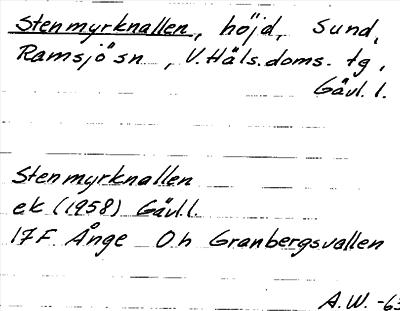 Stenmyrknallen, höjd, Sund,
Ramsjö sn, V. Häls. doms. tg,
Gävl. l.
Stenmyrknallen
ek (1958) Gävl. l.
17F Ånge 0h Granbergsvallen
A.W. -63